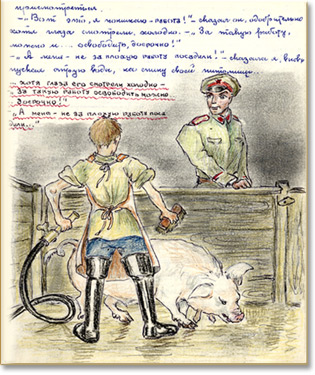 - "Вот это, я понимаю - работа!" - сказал он, одобрительно
хотя глаза смотрели, холодно. - "За такую работу,
можно и... освободить, досрочно!"
- "А меня - не за плохую работу посадили!" - сказала я, вновь
пуская струю воды, на спину своей питомицы.
- хотя глаза его смотрели холодно -
За такую работу освободить можно
досрочно!"
"А меня - не за плохую работу поса
дили.